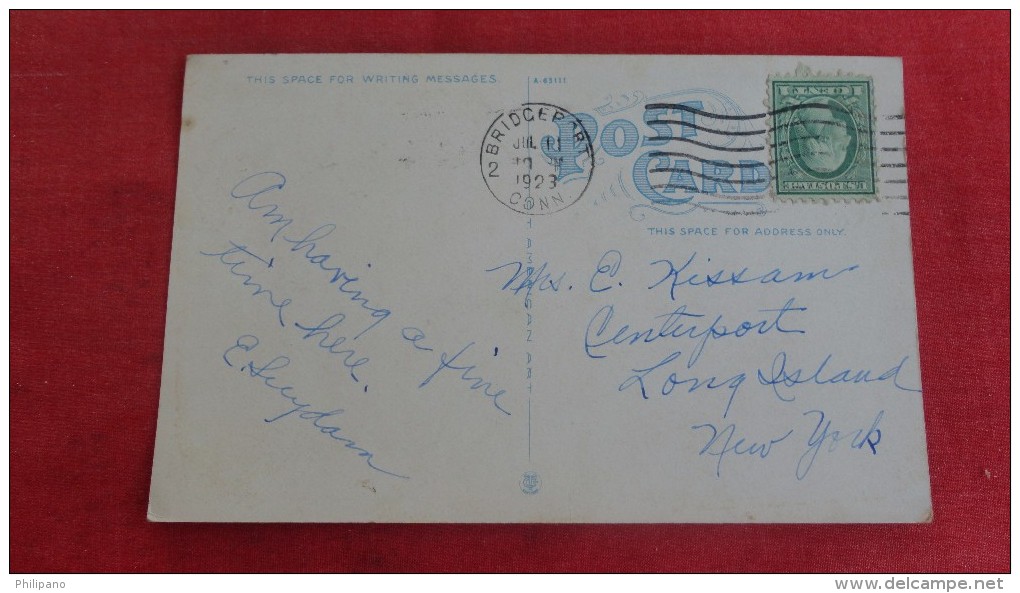 THIS SPACE FOR WRITING MESSAGES.
A-65111
POST CARD
THIS SPACE FOR ADDRESS ONLY.
BRIDGEPORT
2
JUL 11
1923
CONN
Am having a fine
time here.
E. Suydam
Mrs. E. Kissam
Centerport
Long Island
New York
Philipano
www.delcampe.net